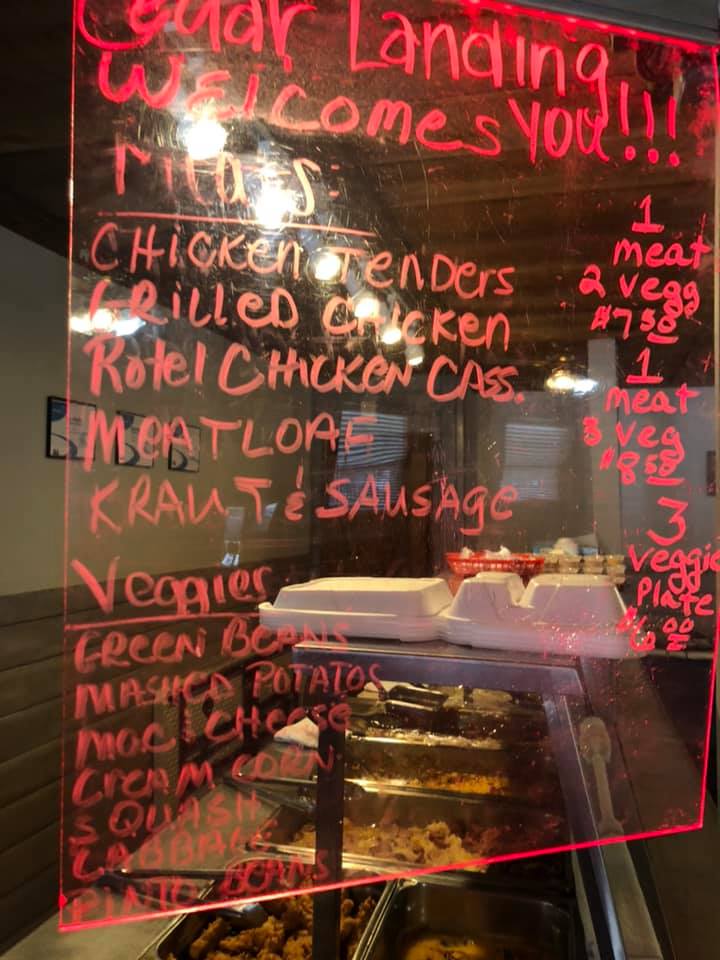 Cedar Landing
Welcomes YOU!!!
Meats:
CHicken Tenders
Grilled Chicken
Rotel CHicken Cass.
Meatloaf
Kraut & Sausage
Veggies
Green Beans
Mashed Potatos
Mac & Cheese
Cream Corn
Squash
Cabbage
Pinto Beans
1
meat
2 vegg
$7.50
1
meat
3 veg
$8.50
3
veggie
Plate
$6.00